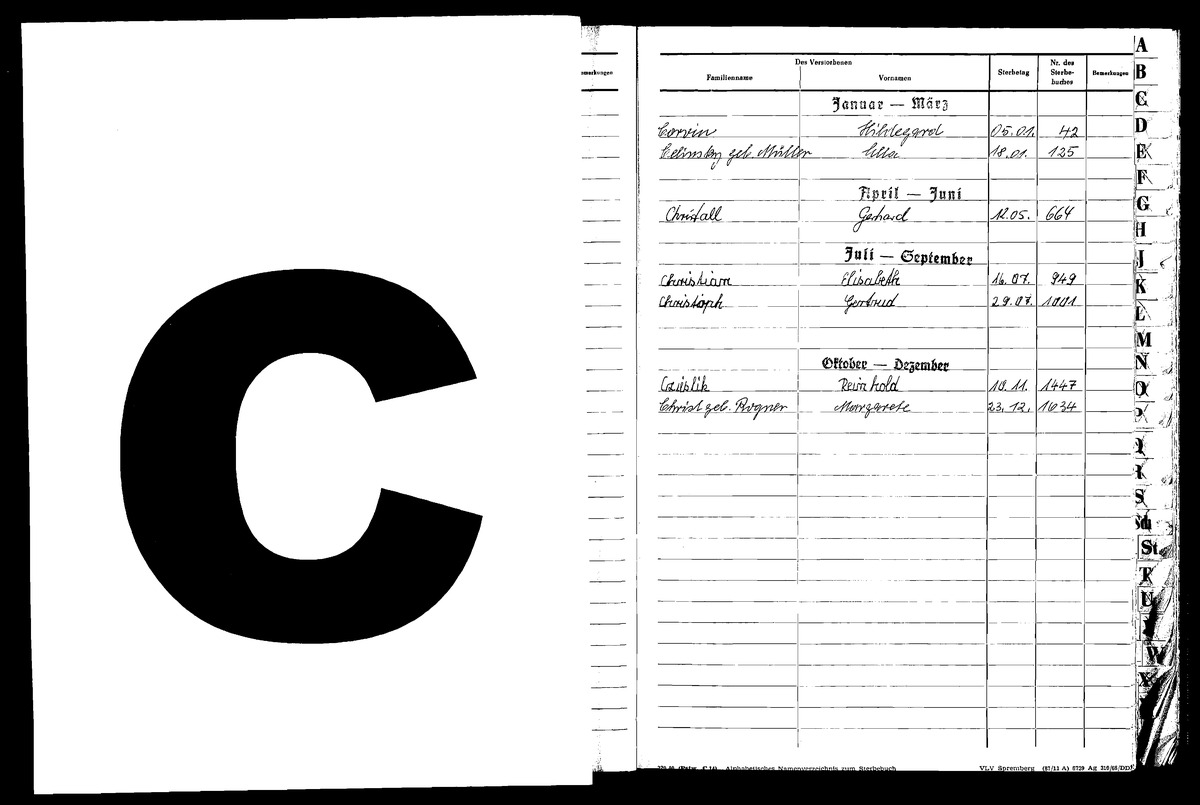 C
emerkungen
Des Verstorbenen
Familienname Vornamen Sterbetag Nr. des Sterbe-buches Bemerkungen
Januar — März
Corvin Hildegard 05.01. 42
Celinsky geb. Müller Ella 18.01. 125
April — Juni
Christall Gerhard 12.05. 664
Juli — September
Christian Elisabeth 16.07. 949
Christoph Gertrud 29.07. 1001
Oktober — Dezember
Czieslik Reinhold 10.11. 1447
Christ geb. Rogner Margarete 23.12. 1634
Alphabetisches Namenverzeichnis zum Sterbebuch VLV Spremberg (87/11 A) 6729 Ag 310/65/DDR
A
B
C
D
E
F
G
H
J
K
L
M
N
O
P
Q
R
S
Sch
St
T
U
W
X